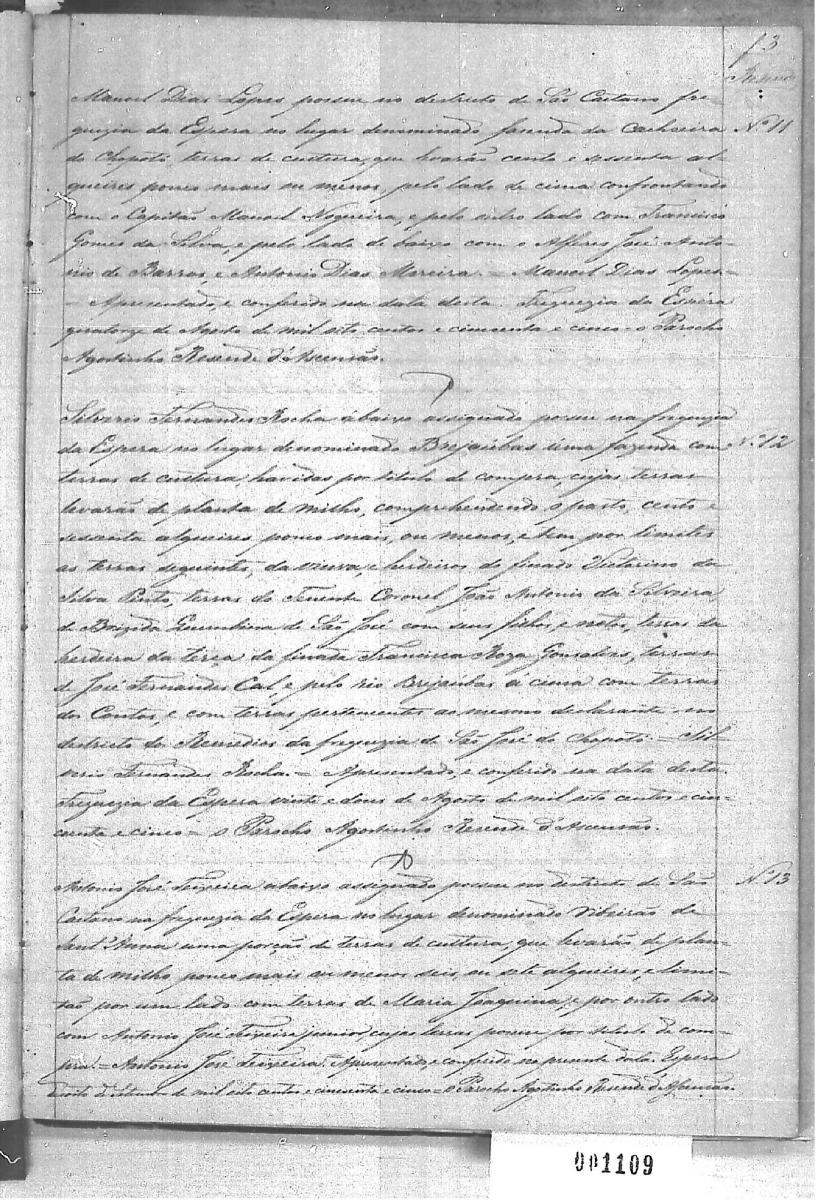 f 3
Manoel Dias Lopes possue no destricto de São Caetano fre-
guezia da Espera no lugar denominado fazenda da Cachoeira Nº 11
do Chopotó, terras de cultura, que levarão cento e sessenta al-
queires pouco mais ou menos, pelo lado de cima confrontando
com o Capitão Manoel Nogueira, e pelo outro lado com Francisco
Gomes da Silva, e pelo lado de baixo com o Alferes José Anto-
nio de Barros, e Antonio Dias Moreira. = Manoel Dias Lopes =
= Apresentado, e conferido na data desta. Freguezia da Espera
quatorze de Agosto de mil oito centos e cincoenta e cinco = o Parocho
Agostinho Resende d'Ascensão.
Silverio Fernandes Rocha abaixo assignado possue na freguezia
da Espera no lugar denominado Brejaúbas úma fazenda com Nº 12
terras de cultura havidas por titulo de compra, cujas terras
levarão de planta de milho, comprehendendo o pasto, cento e
sessenta alqueires pouco mais, ou menos, e tem por limites
as terras seguintes, da viuva, e herdeiros do finado Victorino da
Silva Pinto, terras do Tenente Coronel João Antonio da Silveira
de Brizida de São José com seus filhos, e netos, terras da
herdeira da terça da finada Francisca Roza Gonsalves, terras
de José Fernandes Cal, e pelo rio Brejaubas á cima com terras
dos Contos, e com terras pertencentes ao mesmo declarante no
destricto do Remedios da freguezia de São José do Chopotó. = Sil-
verio Fernandes Rocha. = Apresentado, e conferido na data desta.
Freguezia da Espera vinte e dous de Agosto de mil oito centos e cin-
coenta e cinco = o Parocho Agostinho Resende d'Ascensão.
Antonio José Teixeira abaixo assignado possue no destricto de São Nº 13
Caetano na freguezia da Espera no lugar denominado Ribeirão de
Sant'Anna uma porção de terras de cultura, que levarão de plan-
ta de milho pouco mais ou menos seis, ou sete alqueires, e limi-
tão por um lado com terras de Maria Joaquina, e por outro lado
com Antonio José Teixeira junior, cujas terras possue por titulo de com-
pra. = Antonio José Teixeira. = Apresentado, e conferido na presente data. Espera
de mil oito centos e cincoenta e cinco = o Parocho Agostinho Resende d'Ascensão.
001109